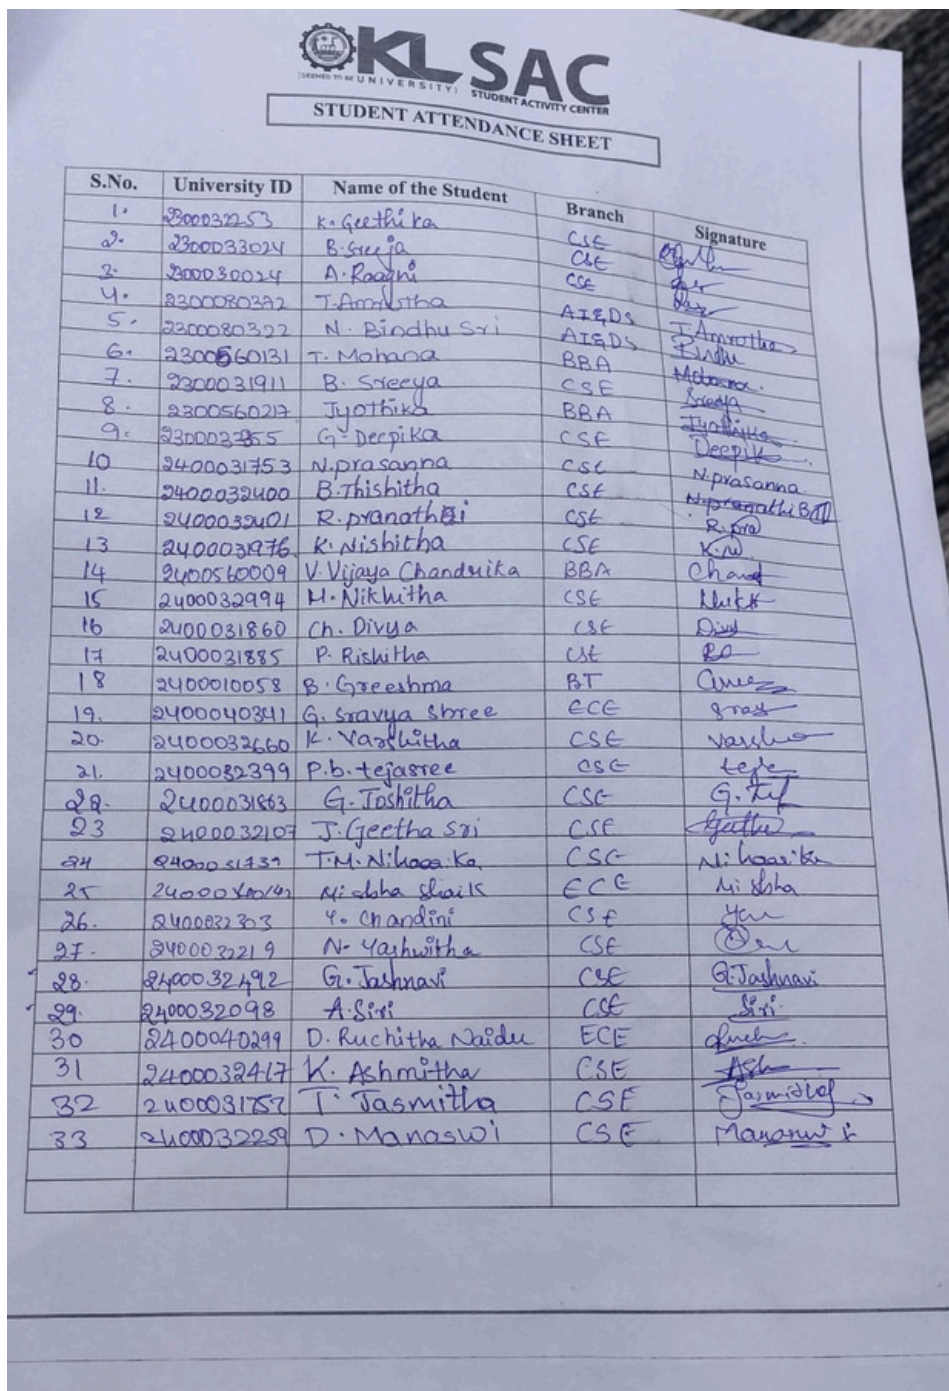 KL SAC
(DEEMED TO BE UNIVERSITY) STUDENT ACTIVITY CENTER
STUDENT ATTENDANCE SHEET
S.No. University ID Name of the Student Branch Signature
1. 2300032253 K. Geethika CSE
2. 2300033024 B. Sreeja CSE
3. 2300030024 A. Raagni CSE
4. 2300080372 T. Amrutha AI&DS T. Amrutha
5. 2300080322 N. Bindhu Sri AI&DS Bindhu
6. 2300560131 T. Mohana BBA Mohana.
7. 2300031911 B. Sreeya CSE Sreeya
8. 2300560217 Jyothika BBA Jyothika
9. G. Deepika CSE Deepik
10 2400031753 N.prasanna CSE N.prasanna
11. 2400032400 B.Thishitha CSE
12 2400032401 R.pranathi CSE R.pra
13 2400031976 K. Nishitha CSE K.N
14 2400560009 V. Vijaya Chandrika BBA Chand
15 2400032994 M. Nikhitha CSE
16 2400031860 Ch. Divya CSE
17 2400031885 P. Rishitha CSE
18 2400010058 B. Greeshma BT
19. 2400040341 G. Sravya Shree ECE
20. 2400032660 K. Varshitha CSE Varsha
21. 2400032399 P.b.tejasree CSE teje
22. 2400031863 G. Joshitha CSE
23 2400032107 J. Geetha Sri CSE
24 2400031739 T.M. Nihaarika CSE Nihaarika
25 Misbha Shaik ECE Misbha
26. 2400032303 Y. Chandini CSE
27. 2400032219 N. Yashwitha CSE
28. 2400032492 G. Jashnavi CSE G.Jashnavi
29. 2400032098 A. Siri CSE Siri.
30 2400040299 D. Ruchitha Naidu ECE
31 2400032417 K. Ashmitha CSE Ash
32 2400031757 T. Jasmitha CSE
33 2400032259 D. Manaswi CSE